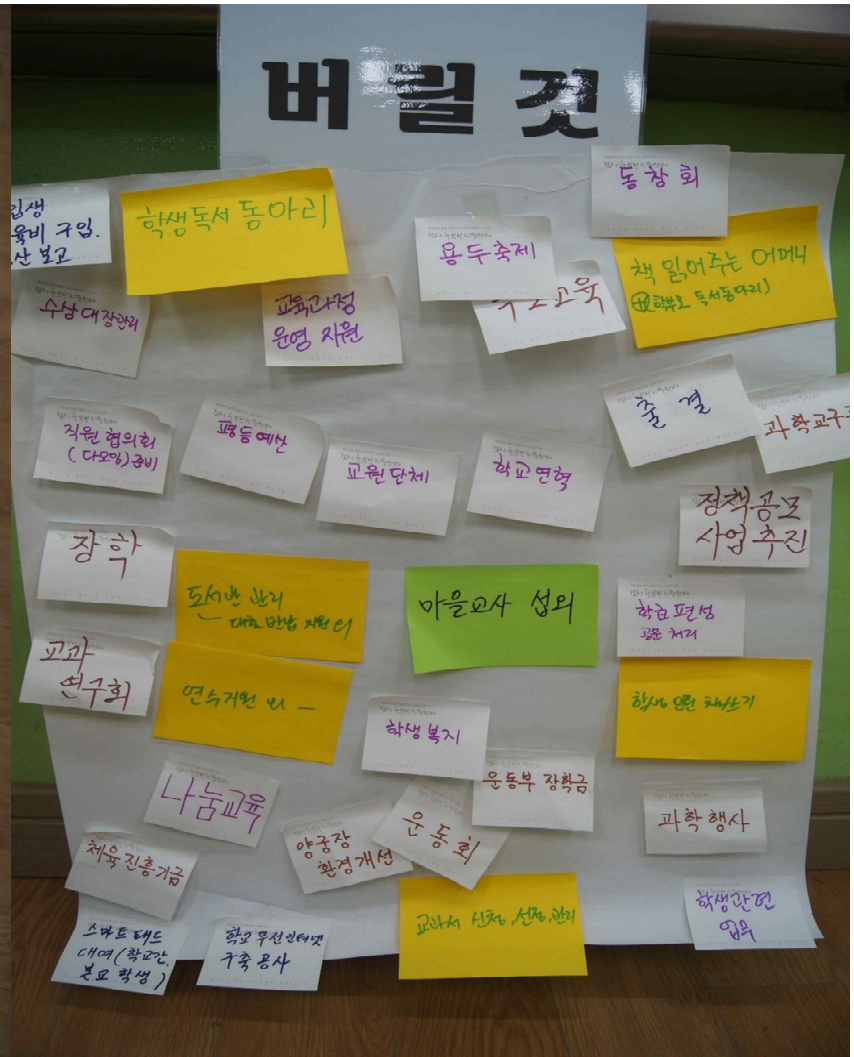 버릴것
동창회
입생
육비 구입.
산 보고
학생독서 동아리
용두축제
책 읽어주는 어머니
(학부모 독서동아리)
교육
수납대장관리
교육과정
운영 지원
출결
과학교구
직원 협의회
(다모임)준비
평등예산
교원단체
학교연혁
정책공모
사업추진
장학
독서반 관리
대출 반납 지원
마을교사 섭외
학급편성
공문 처리
교과
연구회
연수지원
학생
학생복지
나눔교육
운동부 장학금
운동회
과학행사
양궁장
환경개선
체육진흥기금
교과서 신청, 선정, 관리
학생관련
업무
스마트패드
대여(학교간.
본교 학생)
학교 무선인터넷
구축공사